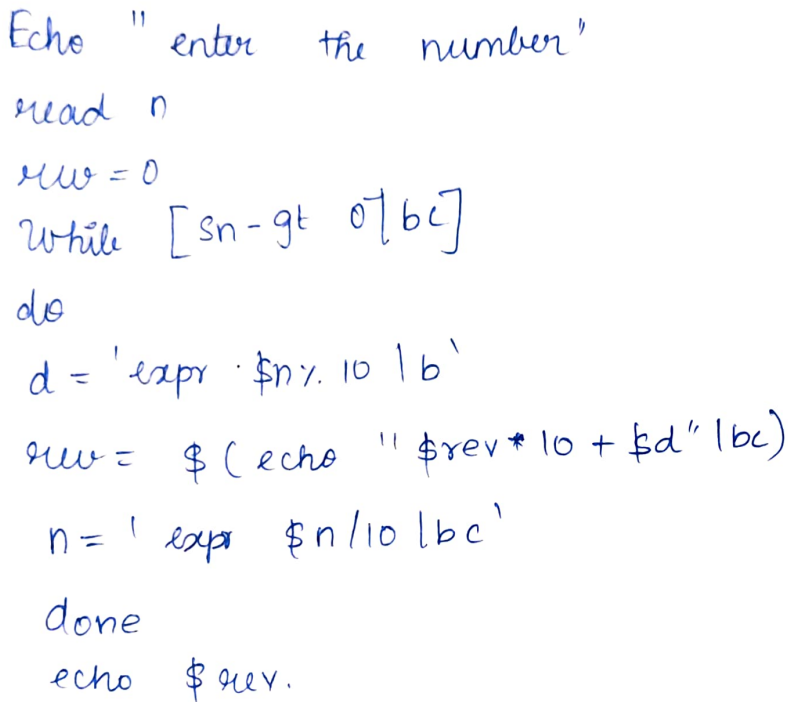 Echo " enter the number"
read n
rev = 0
While [ $n - gt 0 | bc]
do
d = 'expr $n % 10 | b`
rev = $ ( echo " $rev * 10 + $d" | bc)
n = ' expr $n / 10 | bc`
done
echo $ rev.